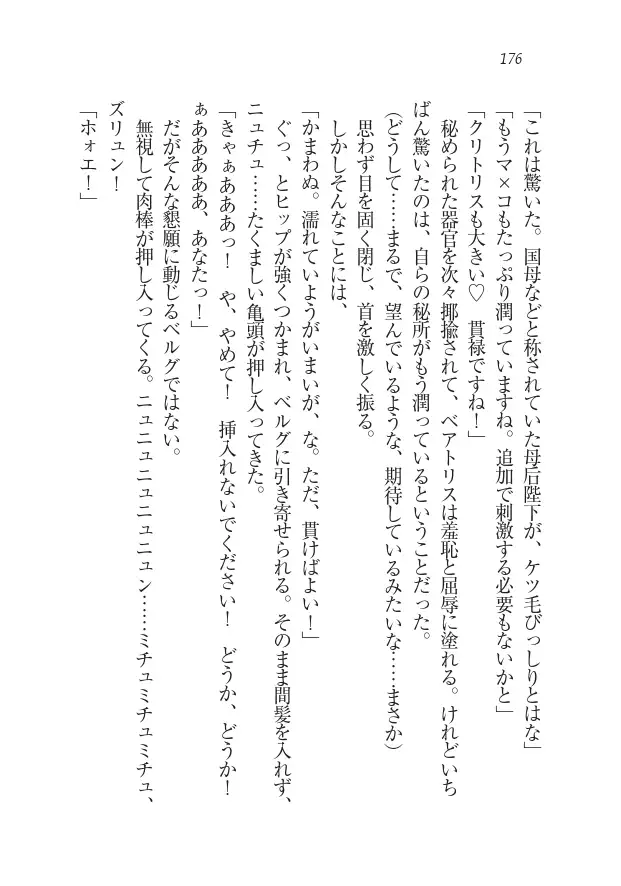 176
「これは驚いた。国母などと称されていた母后陛下が、ケツ毛びっしりとはな」
「もうマ×コもたっぷり潤っていますね。追加で刺激する必要もないかと」
「クリトリスも大きい♡　貫禄ですね！」
　秘められた器官を次々揶揄されて、ベアトリスは羞恥と屈辱に塗れる。けれどいち
ばん驚いたのは、自らの秘所がもう潤っているということだった。
(どうして……まるで、望んでいるような、期待しているみたいな……まさか)
　思わず目を固く閉じ、首を激しく振る。
　しかしそんなことには、
「かまわぬ。濡れていようがいまいが、な。ただ、貫けばよい！」
　ぐっ、とヒップが強くつかまれ、ベルグに引き寄せられる。そのまま間髪を入れず、
ニュチュ……たくましい亀頭が押し入ってきた。
「きゃぁあああっ！　や、やめて！　挿入れないでください！　どうか、どうか！
ぁああああああ、あなたっ！」
　だがそんな懇願に動じるベルグではない。
　無視して肉棒が押し入ってくる。ニュニュニュニュニュン……ミチュミチュミチュ、
ズリュン！
「ホォエ！」